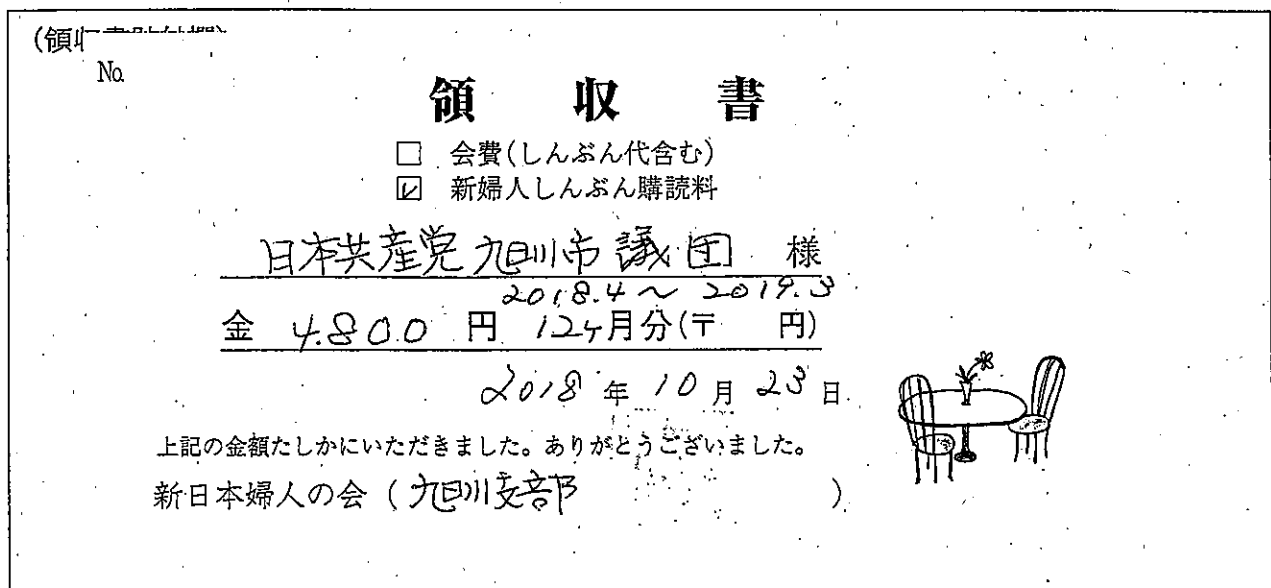 (領収書貼付欄)
No.
領 収 書
□ 会費(しんぶん代含む)
☑ 新婦人しんぶん購読料
日本共産党旭川市議団 様
2018.4〜2019.3
金 4.800 円 12ヶ月分(〒 円)
2018 年 10 月 23 日
上記の金額たしかにいただきました。ありがとうございました。
新日本婦人の会(旭川支部 )